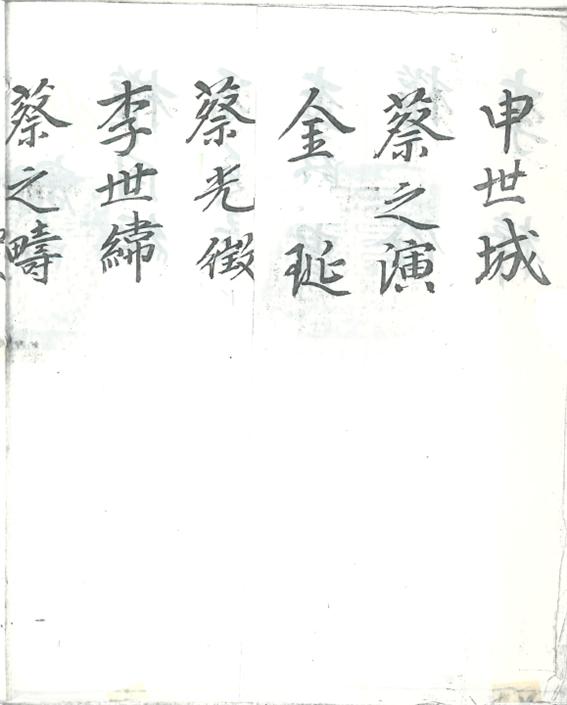 申世城
蔡之演
金珽
蔡光徵
李世緯
蔡之疇